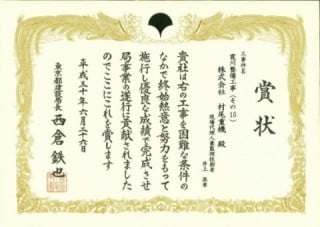 賞状
工事件名
霞川整備工事（その15）
株式会社 村尾重機 殿
現場代理人兼監理技術者
井上
貴社は右の工事を困難な条件の
なかで終始熱意と努力をもって
施行し優良な成績で完成させ
局事業の遂行に貢献されました
のでここにこれを賞します
平成三十年六月二十六日
東京都建設局長
西倉鉄也